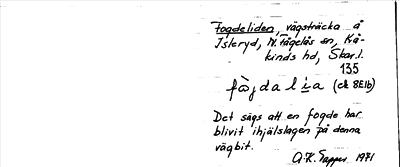 Fogdeliden, vägsträcka å
Isleryd, N. Fågelås sn, Kå-
kinds hd, Skar.l.
135
(ek 8E1b)
Det sägs att en fogde har
blivit ihjälslagen på denna
vägbit.
1971